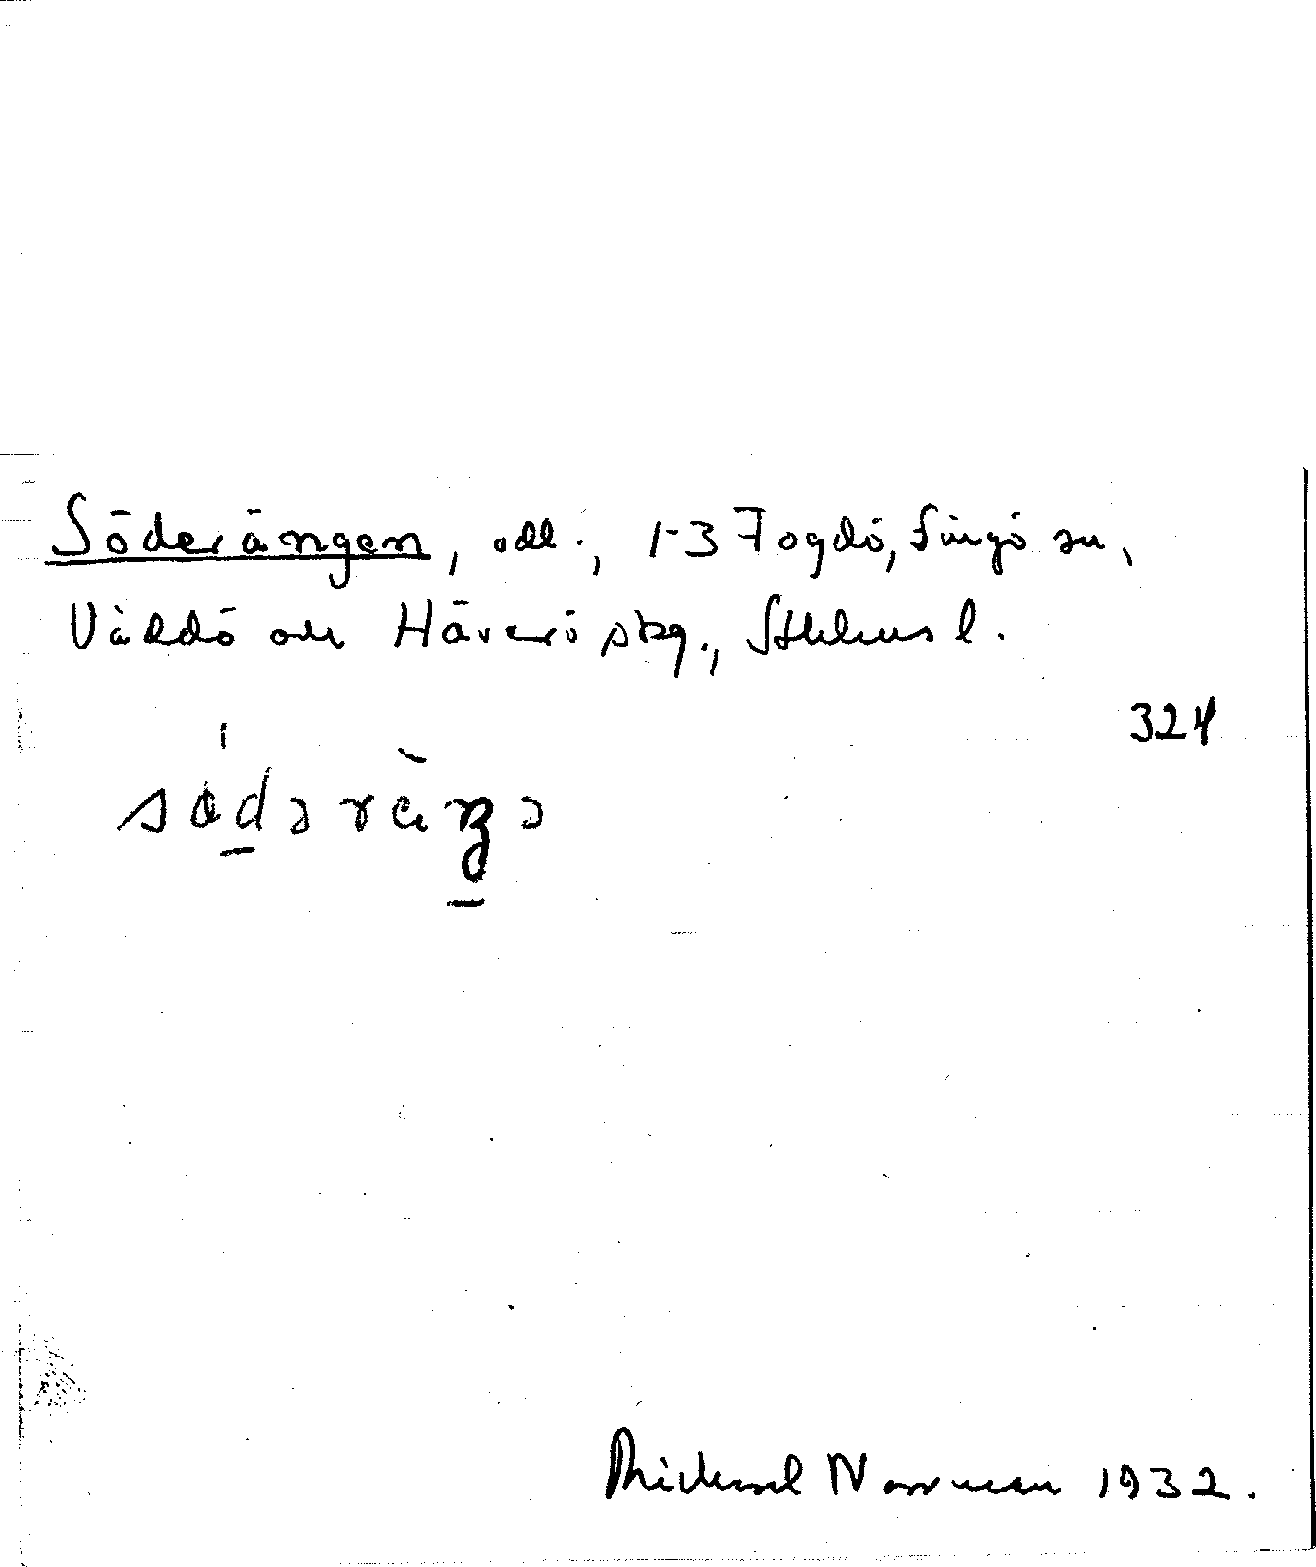 Söderängen, odl., 1-3 Fogdö, Singö sn,
Väddö och Häverö skg., Sthlms l.
324
södəräŋə
Michael Norrman 1932.